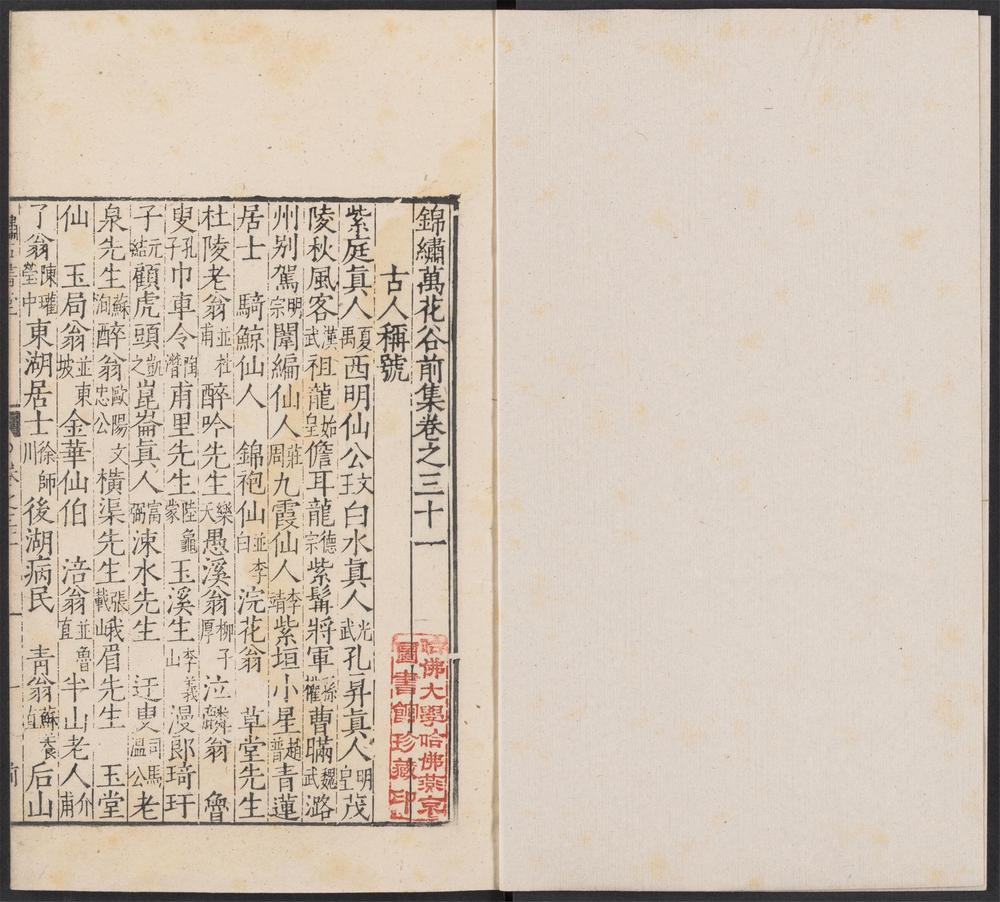 錦繡萬花谷前集卷之三十一
古人稱號
紫庭眞人夏禹西明仙公玟王白水眞人光武孔昇眞人明皇茂
陵秋風客漢武祖龍始皇儋耳龍德宗紫髯將軍孫權曹瞞魏武潞
州別駕明宗闈編仙人莊周九霞仙人李靖紫垣小星趙普青蓮
居士 騎鯨仙人 錦袍仙並李白浣花翁 草堂先生
杜陵老翁並杜甫醉吟先生樂天愚溪翁柳子厚泣麟翁 魯
叟孔子巾車令陶潛甫里先生陸龜蒙玉溪生李義山漫郎琦玗
子元結顧虎頭凱之崑崙眞人富弼涑水先生 迂叟司馬溫公老
泉先生蘇洵醉翁歐陽文忠公橫渠先生張載峨眉先生 玉堂
仙 玉局翁並東坡金華仙伯 涪翁並魯直半山老人介甫
了翁陳瓘瑩中東湖居士徐師川後湖病民 青翁蘇養直后山
哈佛大學哈佛燕京圖書館珍藏印